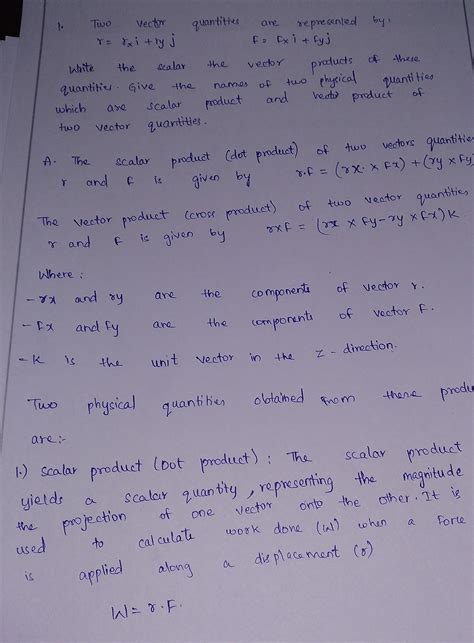 1. Two vector quantities are represented by:
r = rxi + ryj F = Fxi + Fyj
Write the scalar the vector products of these
quantities. Give the names of two physical quantities
which are scalar product and vector product of
two vector quantities.
A. The scalar product (dot product) of two vectors quantities
r and F is given by r.F = (rx × Fx) + (ry × Fy)
The vector product (cross product) of two vector quantities
r and F is given by rxF = (rx × Fy - ry × Fx)K.
Where :
- rx and ry are the components of vector r.
- Fx and Fy are the components of vector F.
- K is the unit vector in the z - direction.
Two physical quantities obtained from these produ
are:-
1.) scalar product (Dot product) : The scalar product
yields a scalar quantity, representing the magnitude
the projection of one vector onto the other. It is
used to calculate work done (W) when a force
is applied along a displacement (r)
W = r.F.